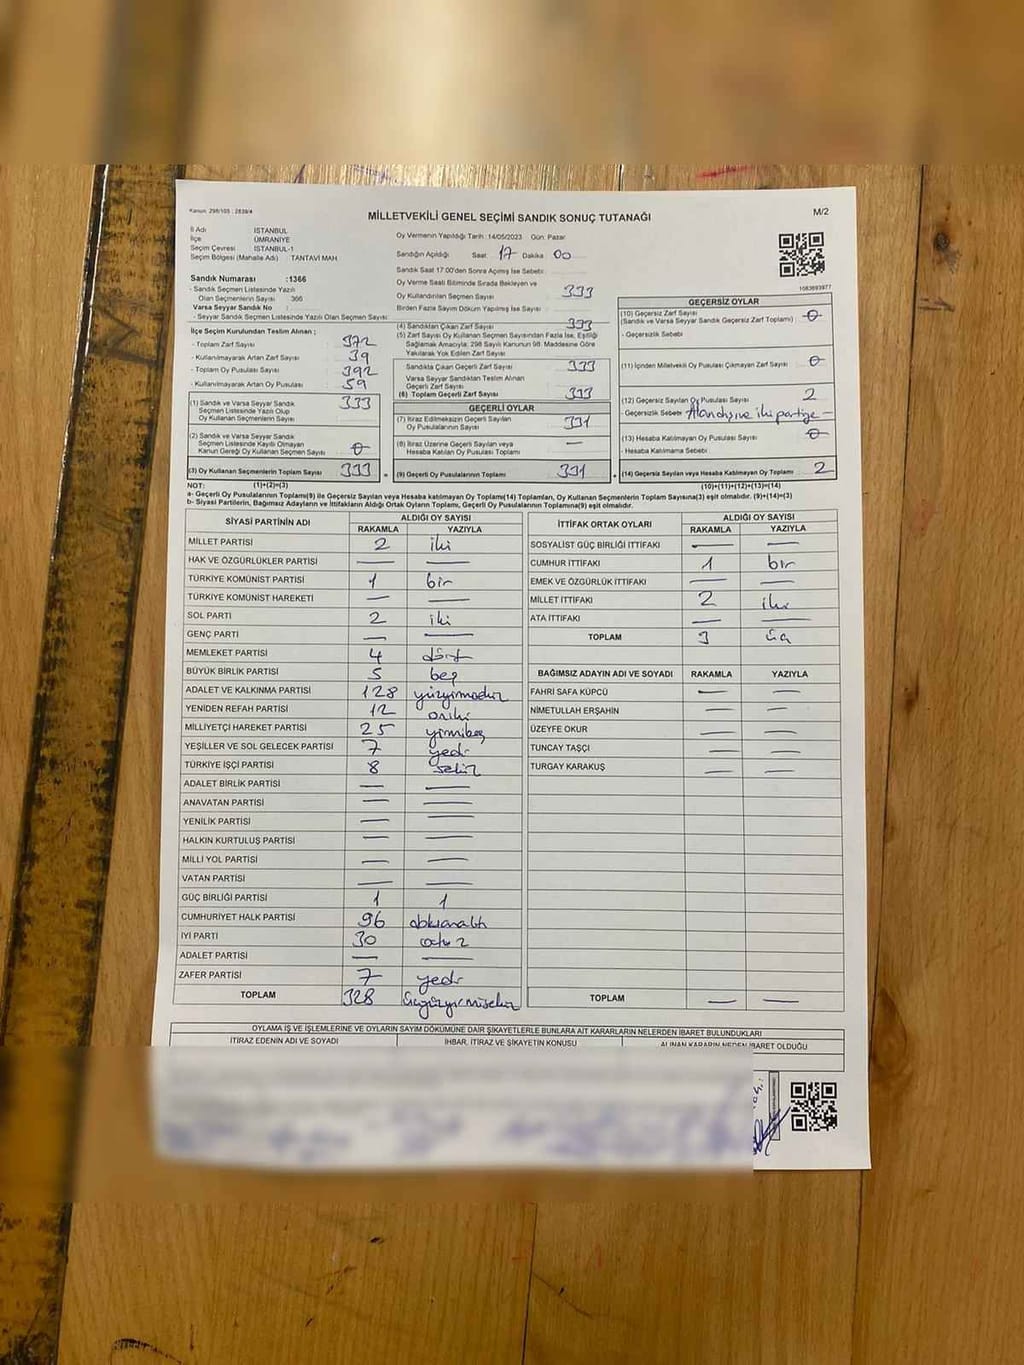 Kanun: 298/105 : 2839/4
MİLLETVEKİLİ GENEL SEÇİMİ SANDIK SONUÇ TUTANAĞI
M/2
İl Adı İSTANBUL
İlçe ÜMRANİYE
Seçim Çevresi İSTANBUL-1
Seçim Bölgesi (Mahalle Adı) : TANTAVİ MAH
Oy Vermenin Yapıldığı Tarih : 14/05/2023 Gün: Pazar
Sandığın Açıldığı Saat 17 Dakika 00
Sandık Saat 17:00'den Sonra Açımış İse Sebebi
Oy Verme Saati Bitiminde Sırada Bekleyen ve
Oy Kullandırılan Seçmen Sayısı 333
Birden Fazla Sayım Döküm Yapılmış İse Sayısı :
1083693977
Sandık Numarası :1366
- Sandık Seçmen Listesinde Yazılı
Olan Seçmenlerin Sayısı : 366
Varsa Seyyar Sandık No :
- Seyyar Sandık Seçmen Listesinde Yazılı Olan Seçmen Sayısı:
İlçe Seçim Kurulundan Teslim Alınan ;
- Toplam Zarf Sayısı : 372
- Kullanılmayarak Artan Zarf Sayısı : 39
- Toplam Oy Pusulası Sayısı : 392
- Kullanılmayarak Artan Oy Pusulası : 59
(1) Sandık ve Varsa Seyyar Sandık
Seçmen Listesinde Yazılı Olup
Oy Kullanan Seçmenlerin Sayısı 333
(2) Sandık ve Varsa Seyyar Sandık
Seçmen Listesinde Kayıtlı Olmayan
Kanun Gereği Oy Kullanan Seçmen Sayısı 0
(3) Oy Kullanan Seçmenlerin Toplam Sayısı 333
(4) Sandıktan Çıkan Zarf Sayısı 333
(5) Zarf Sayısı Oy Kullanan Seçmen Sayısından Fazla İse, Eşitliği
Sağlamak Amacıyla; 298 Sayılı Kanunun 98. Maddesine Göre
Yakılarak Yok Edilen Zarf Sayısı
Sandıkta Çıkan Geçerli Zarf Sayısı 333
Varsa Seyyar Sandıktan Teslim Alınan
Geçerli Zarf Sayısı
(6) Toplam Geçerli Zarf Sayısı 333
GEÇERLİ OYLAR
(7) İtiraz Edilmeksizin Geçerli Sayılan
Oy Pusulalarının Sayısı 331
(8) İtiraz Üzerine Geçerli Sayılan veya
Hesaba Katılan Oy Pusulası Toplamı —
= (9) Geçerli Oy Pusulalarının Toplamı 331
GEÇERSİZ OYLAR
(10) Geçersiz Zarf Sayısı
(Sandık ve Varsa Seyyar Sandık Geçersiz Zarf Toplamı) : 0
- Geçersizlik Sebebi :
(11) İçinden Milletvekili Oy Pusulası Çıkmayan Zarf Sayısı : 0
(12) Geçersiz Sayılan Oy Pusulası Sayısı 2
- Geçersizlik Sebebi : Alan dışı ve iki partiye —
(13) Hesaba Katılmayan Oy Pusulası Sayısı : 0
- Hesaba Katılmama Sebebi :
+ (14) Geçersiz Sayılan veya Hesaba Katılmayan Oy Toplamı 2
NOT: (1)+(2)=(3) (10)+(11)+(12)+(13)=(14)
a- Geçerli Oy Pusulalarının Toplamı(9) ile Geçersiz Sayılan veya Hesaba katılmayan Oy Toplamı(14) Toplamları, Oy Kullanan Seçmenlerin Toplam Sayısına(3) eşit olmalıdır. (9)+(14)=(3)
b- Siyasi Partilerin, Bağımsız Adayların ve İttifakların Aldığı Ortak Oyların Toplamı, Geçerli Oy Pusulalarının Toplamına(9) eşit olmalıdır.
SİYASİ PARTİNİN ADI ALDIĞI OY SAYISI
RAKAMLA YAZIYLA
MİLLET PARTİSİ 2 iki
HAK VE ÖZGÜRLÜKLER PARTİSİ — —
TÜRKİYE KOMÜNİST PARTİSİ 1 bir
TÜRKİYE KOMÜNİST HAREKETİ — —
SOL PARTİ 2 iki
GENÇ PARTİ — —
MEMLEKET PARTİSİ 4 dört
BÜYÜK BİRLİK PARTİSİ 5 beş
ADALET VE KALKINMA PARTİSİ 128 yüzyirmisekiz
YENİDEN REFAH PARTİSİ 12 oniki
MİLLİYETÇİ HAREKET PARTİSİ 25 yirmibeş
YEŞİLLER VE SOL GELECEK PARTİSİ 7 yedi
TÜRKİYE İŞÇİ PARTİSİ 8 sekiz
ADALET BİRLİK PARTİSİ — —
ANAVATAN PARTİSİ — —
YENİLİK PARTİSİ — —
HALKIN KURTULUŞ PARTİSİ — —
MİLLİ YOL PARTİSİ — —
VATAN PARTİSİ — —
GÜÇ BİRLİĞİ PARTİSİ 1 1
CUMHURİYET HALK PARTİSİ 96 doksanaltı
İYİ PARTİ 30 otuz
ADALET PARTİSİ — —
ZAFER PARTİSİ 7 yedi
TOPLAM 328 üçyüzyirmisekiz
İTTİFAK ORTAK OYLARI ALDIĞI OY SAYISI
RAKAMLA YAZIYLA
SOSYALİST GÜÇ BİRLİĞİ İTTİFAKI — —
CUMHUR İTTİFAKI 1 bir
EMEK VE ÖZGÜRLÜK İTTİFAKI — —
MİLLET İTTİFAKI 2 iki
ATA İTTİFAKI — —
TOPLAM 3 üç
BAĞIMSIZ ADAYIN ADI VE SOYADI RAKAMLA YAZIYLA
FAHRİ SAFA KÜPCÜ — —
NİMETULLAH ERŞAHİN — —
ÜZEYFE OKUR — —
TUNCAY TAŞÇI — —
TURGAY KARAKUŞ — —
TOPLAM — —
OYLAMA İŞ VE İŞLEMLERİNE VE OYLARIN SAYIM DÖKÜMÜNE DAİR ŞİKAYETLERLE BUNLARA AİT KARARLARIN NELERDEN İBARET BULUNDUKLARI
İTİRAZ EDENİN ADI VE SOYADI İHBAR, İTİRAZ VE ŞİKAYETİN KONUSU ALINAN KARARIN NEDEN İBARET OLDUĞU